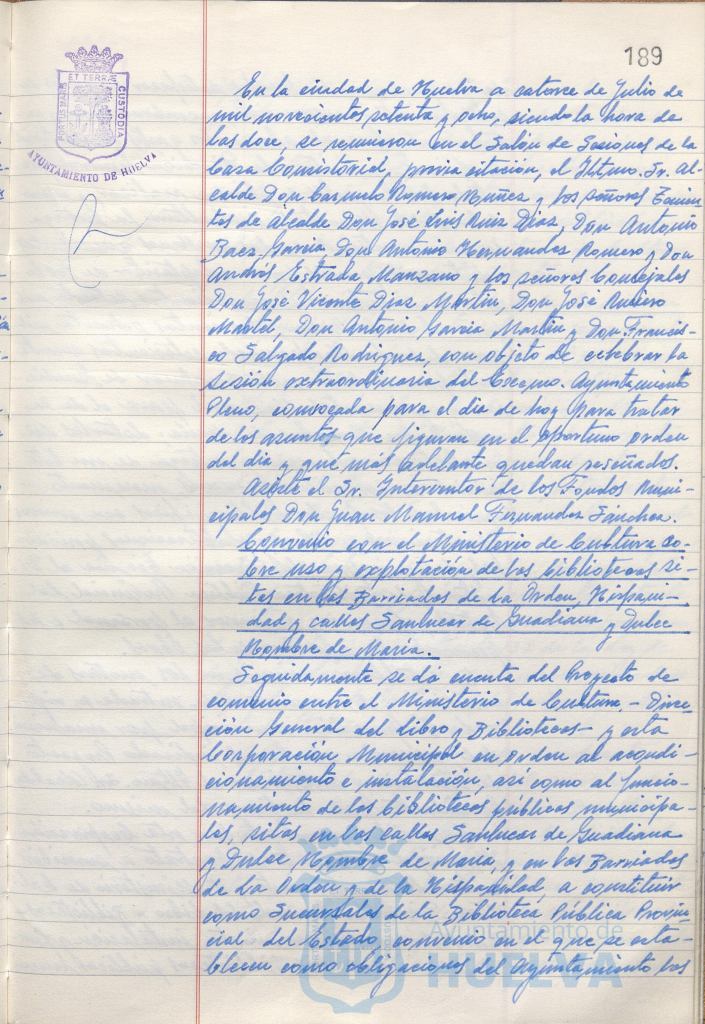 189
ET TERRAE
PORTUS MARIS
CUSTODIA
AYUNTAMIENTO DE HUELVA
En la ciudad de Huelva a catorce de Julio de
mil novecientos setenta y ocho, siendo la hora de
las doce, se reunieron en el Salón de Sesiones de la
Casa Consistorial, previa citación, el Iltmo. Sr. Al-
calde Don Carmelo Romero Núñez y los señores Tenien-
tes de Alcalde Don José Luis Ruiz Díaz, Don Antonio
Baez García, Don Antonio Hernandez Romero y Don
Andrés Estrada Manzano y los señores Concejales
Don José Vicente Díaz Martín, Don José
Martel, Don Antonio García Martín y Don Francis-
co Salgado Rodríguez, con objeto de celebrar la
sesión extraordinaria del Excmo. Ayuntamiento
Pleno, convocada para el día de hoy para tratar
de los asuntos que figuran en el oportuno orden
del día y que más adelante quedan reseñados.
Asiste el Sr. Interventor de los Fondos Muni-
cipales Don Juan Manuel Fernandez Sánchez.
Convenio con el Ministerio de Cultura so-
bre uso y explotación de las bibliotecas si-
tas en las Barriadas de La Orden, Hispani-
dad y calles Sanlucar de Guadiana y Dulce
Nombre de María.
Seguidamente se dá cuenta del Proyecto de
convenio entre el Ministerio de Cultura, - Direc-
ción General del Libro y Bibliotecas - y esta
Corporación Municipal en orden al acondi-
cionamiento e instalación, así como al funcio-
namiento de las bibliotecas públicas municipa-
les, sitas en las calles Sanlucar de Guadiana
y Dulce Nombre de María, y en las Barriadas
de La Orden y de la Hispanidad, a constituir
como Sucursales de la Biblioteca Pública Provin-
cial del Estado, convenio en el que se esta-
blecen como obligaciones del Ayuntamiento las
Ayuntamiento de
HUELVA